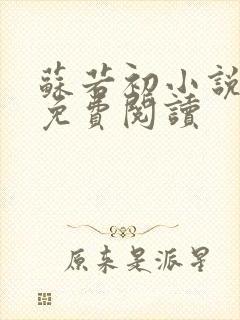 蘇若初小説
免費閱讀
原来是派星